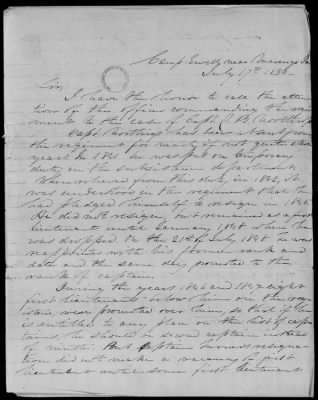 Camp Ewell, near
July 17th 185
Sir,
I have the honor to call the atten-
tion of the officer commanding the regi-
ment to the case of Capt. L. B. Northrop
Capt. Northrop has been absent from
the regiment for nearly if not quite eleven
years. in 1841 he was put on temporary
duty in the subsistence department.
When relieved from this duty in 1842, it
was understood in the regiment that he
had pledged himself to resign in 1845.
He did not resign, but remained as a first
lieutenant until January 1848 when he
was dropped. On the 21st of July 1848 he was
reappointed with his former rank and
date and the same day promoted to the
rank of captain.
During the years 1846 and 1847 eight
first lieutenants below him on the reg-
ister, were promoted over him, so that if he
is entitled to any place on the list of cap-
tains, he should be second captain instead
of ninth. But Captain resigna-
tion did not make a vacancy of first
lieutenant until some first lieutenant